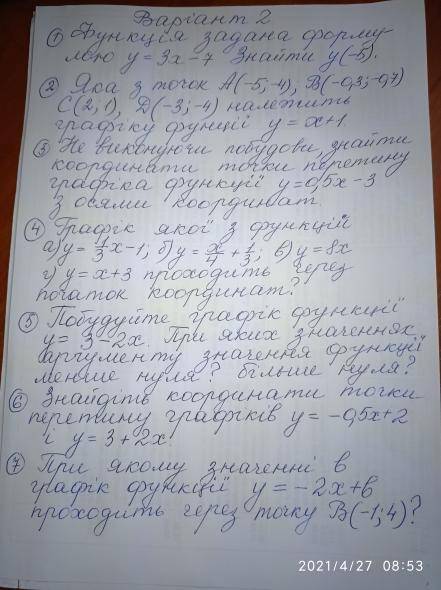 Варіант 2
① Функція задана форму-
лою y = 3x - 7 Знайти y(-5).
② Яка з точок A(-5; -4), B(-0,3; -0,7)
C(2; 1), D(-3; -4) належить
графіку фунції y = x+1
③ Не виконуючи побудови, знайти
координати точки перетину
графіка функції y=0,5x - 3
з осями координат.
④ Графік якої з функцій
а) y = 1/3 x - 1; б) y = x/4 + 1/3; в) y = 8x
г) y = x + 3 проходить через
початок координат?
⑤ Побудуйте графік функції
y = 3 - 2x. При яких значеннях
аргументу значення функції
менше нуля? більше нуля?
⑥ Знайдіть координати точки
перетину графіків y = -0,5x+2
і y = 3 + 2x.
⑦ При якому значенні в
графік функції y = -2x + b
проходить через точку B(-1; 4)?
2021/4/27 08:53